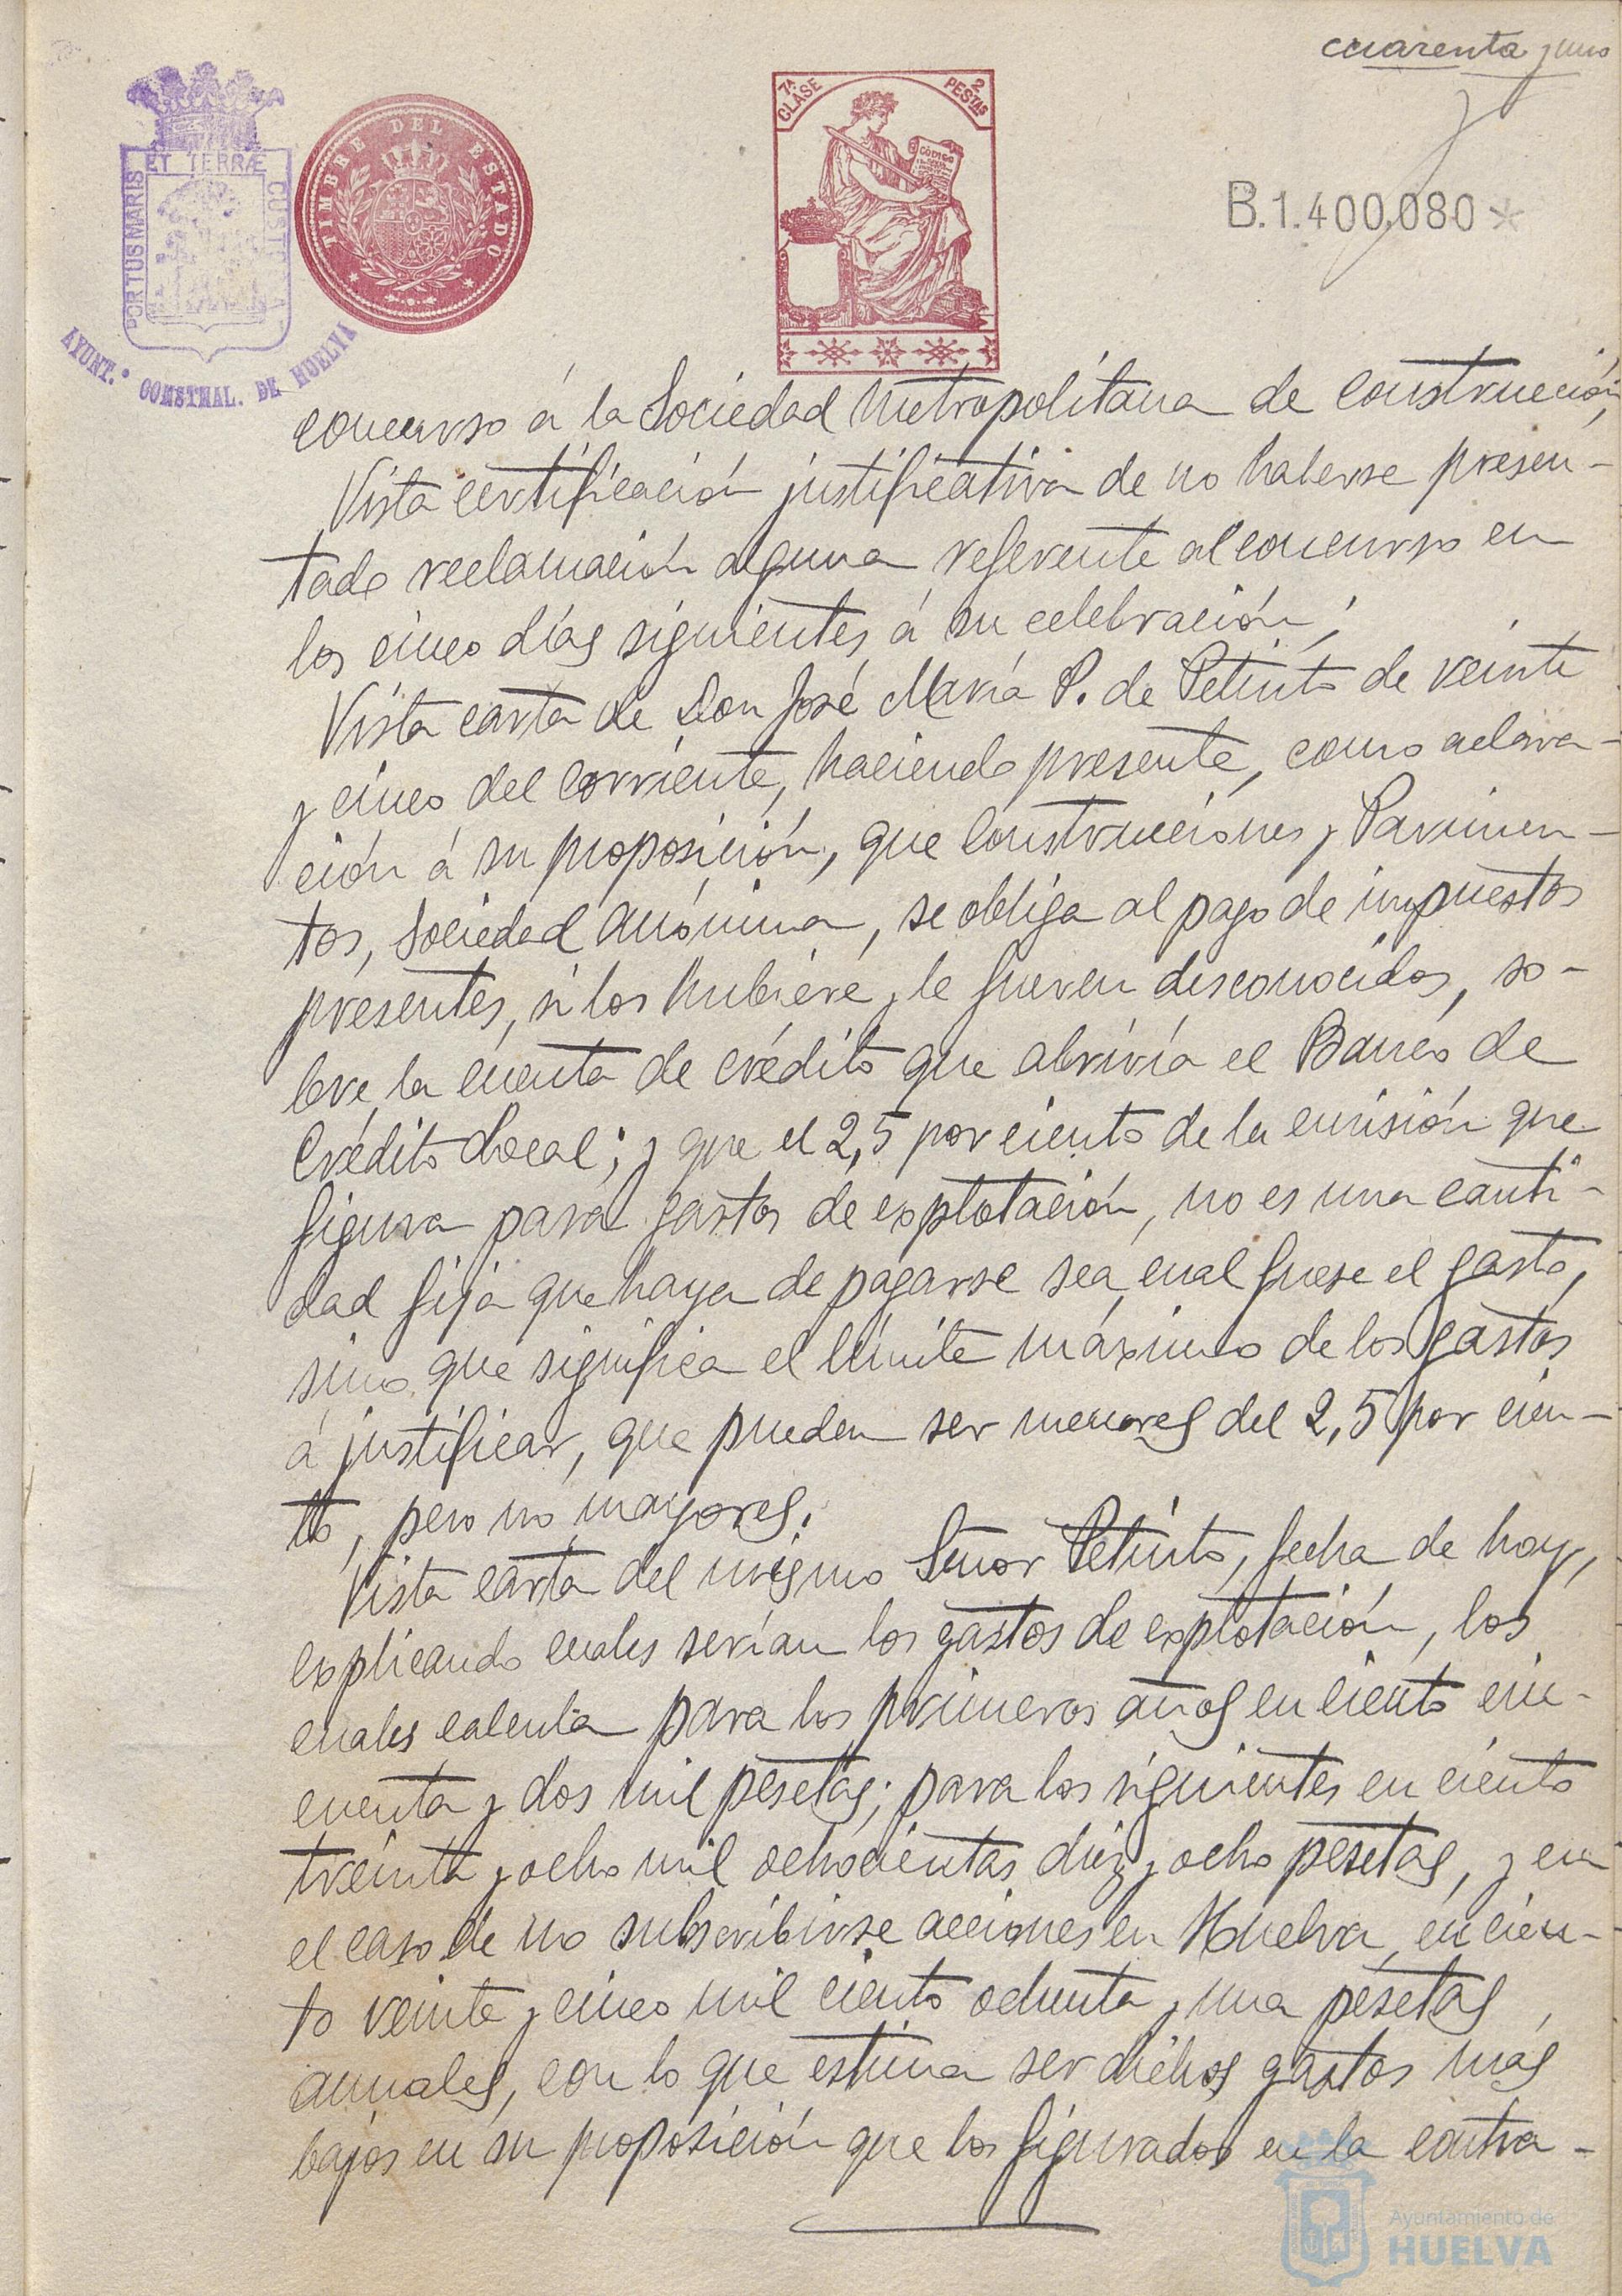 cuarenta y uno
7ª CLASE
2 PESTAS
CÓDIGO
TIMBRE DEL ESTADO
PORTUS MARIS ET TERRÆ CUSTODIA
AYUNT.º CONSTNAL. DE HUELVA
B.1.400,080*
concurso á la Sociedad Metropolitana de Construcción;
Vista certificación justificativa de no haberse presen-
tado reclamación alguna referente al concurso en
los cinco días siguientes á su celebración;
Vista carta de Don José María P. de Petinto de veinte
y cinco del corriente, haciendo presente, como aclara-
ción á su proposición, que Construcciones y Pavimen-
tos, Sociedad Anónima, se obliga al pago de impuestos
presentes, si los hubiere y le fueren desconocidos, so-
bre la cuenta de crédito que abriría el Banco de
Crédito Local; y que el 2,5 por ciento de la emisión que
figura para gastos de explotación, no es una canti-
dad fija que haya de pagarse sea cual fuese el gasto,
sino que significa el límite máximo de los gastos
á justificar, que pueden ser menores del 2,5 por cien-
to, pero no mayores;
Vista carta del mismo Señor Petinto, fecha de hoy,
explicando cuales serían los gastos de explotación, los
cuales calcula para los primeros años en ciento cin-
cuenta y dos mil pesetas; para los siguientes en ciento
treinta y ocho mil ochocientas diez y ocho pesetas, y en
el caso de no subscribirse acciones en Huelva, en cien-
to veinte y cinco mil ciento ochenta y una pesetas
anuales, con lo que estima ser dichos gastos más
bajos en su proposición que los figurados en la contra-
Ayuntamiento de
HUELVA